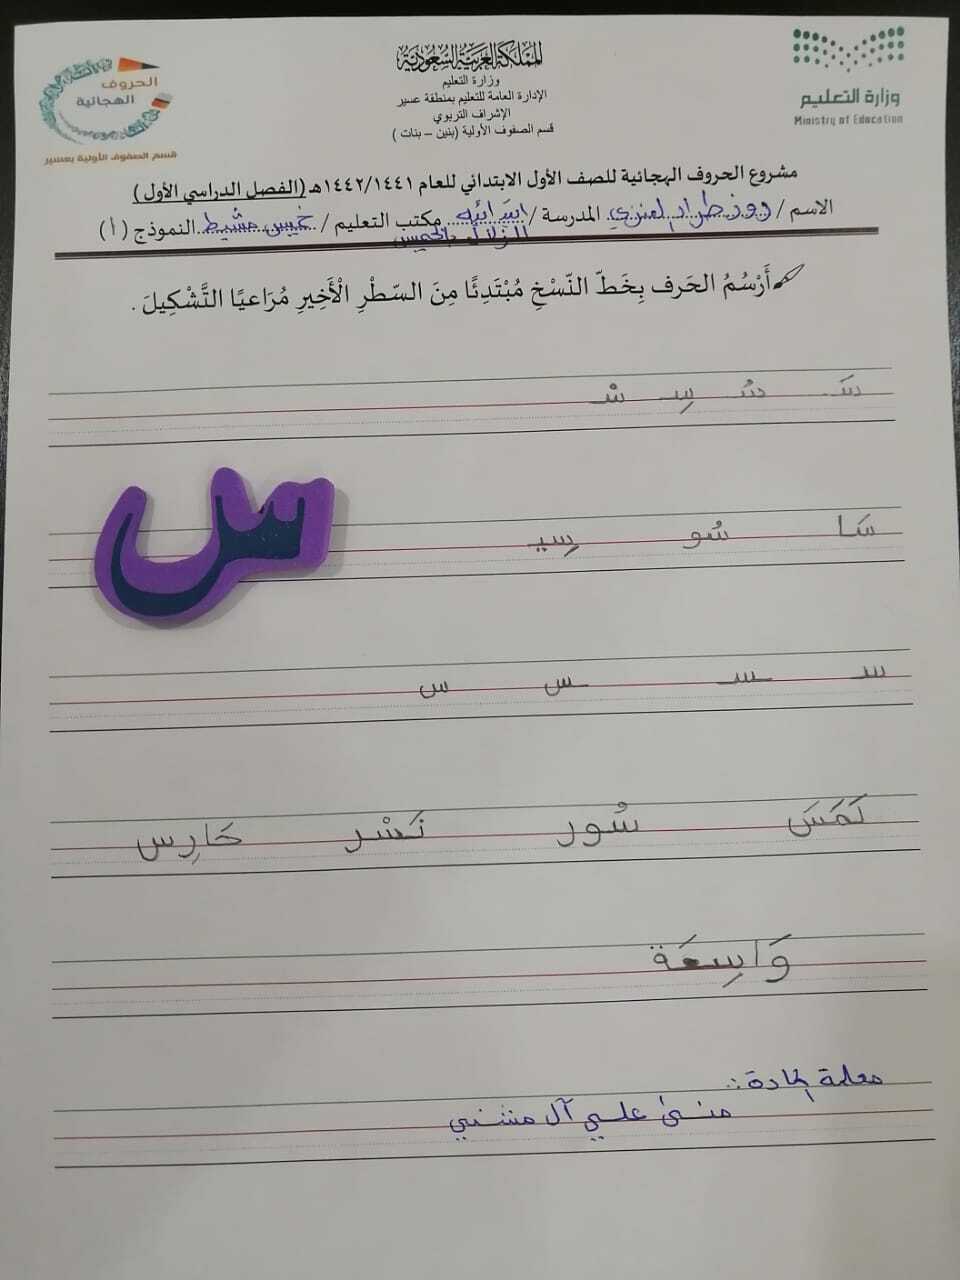 الحروف
الهجائية
قسم الصفوف الأولية بعسير
المملكة العربية السعودية
وزارة التعليم
الإدارة العامة للتعليم بمنطقة عسير
الإشراف التربوي
قسم الصفوف الأولية (بنين – بنات )
وزارة التعليم
Ministry of Education
مشروع الحروف الهجائية للصف الأول الابتدائي للعام ١٤٤٢/١٤٤١هـ (الفصل الدراسي الأول )
الاسم / روز طراد لعنزي المدرسة / ابتدائية مكتب التعليم / خميس مشيط النموذج ( أ )
الزلال بالخميس
أَرْسُمُ الحَرف بِخَطّ النّسْخِ مُبْتَدِئًا مِنَ السّطْرِ الْأَخِيرِ مُرَاعيًا التَّشْكِيلَ .
سَ سُ سِ سْ
سَا سُو سِيـ
س
سـ ـسـ ـس س
لَمَسَ سُور نَسْر حَارِس
وَاسِعَة
معلمة المادة :
منى علي آل مشني